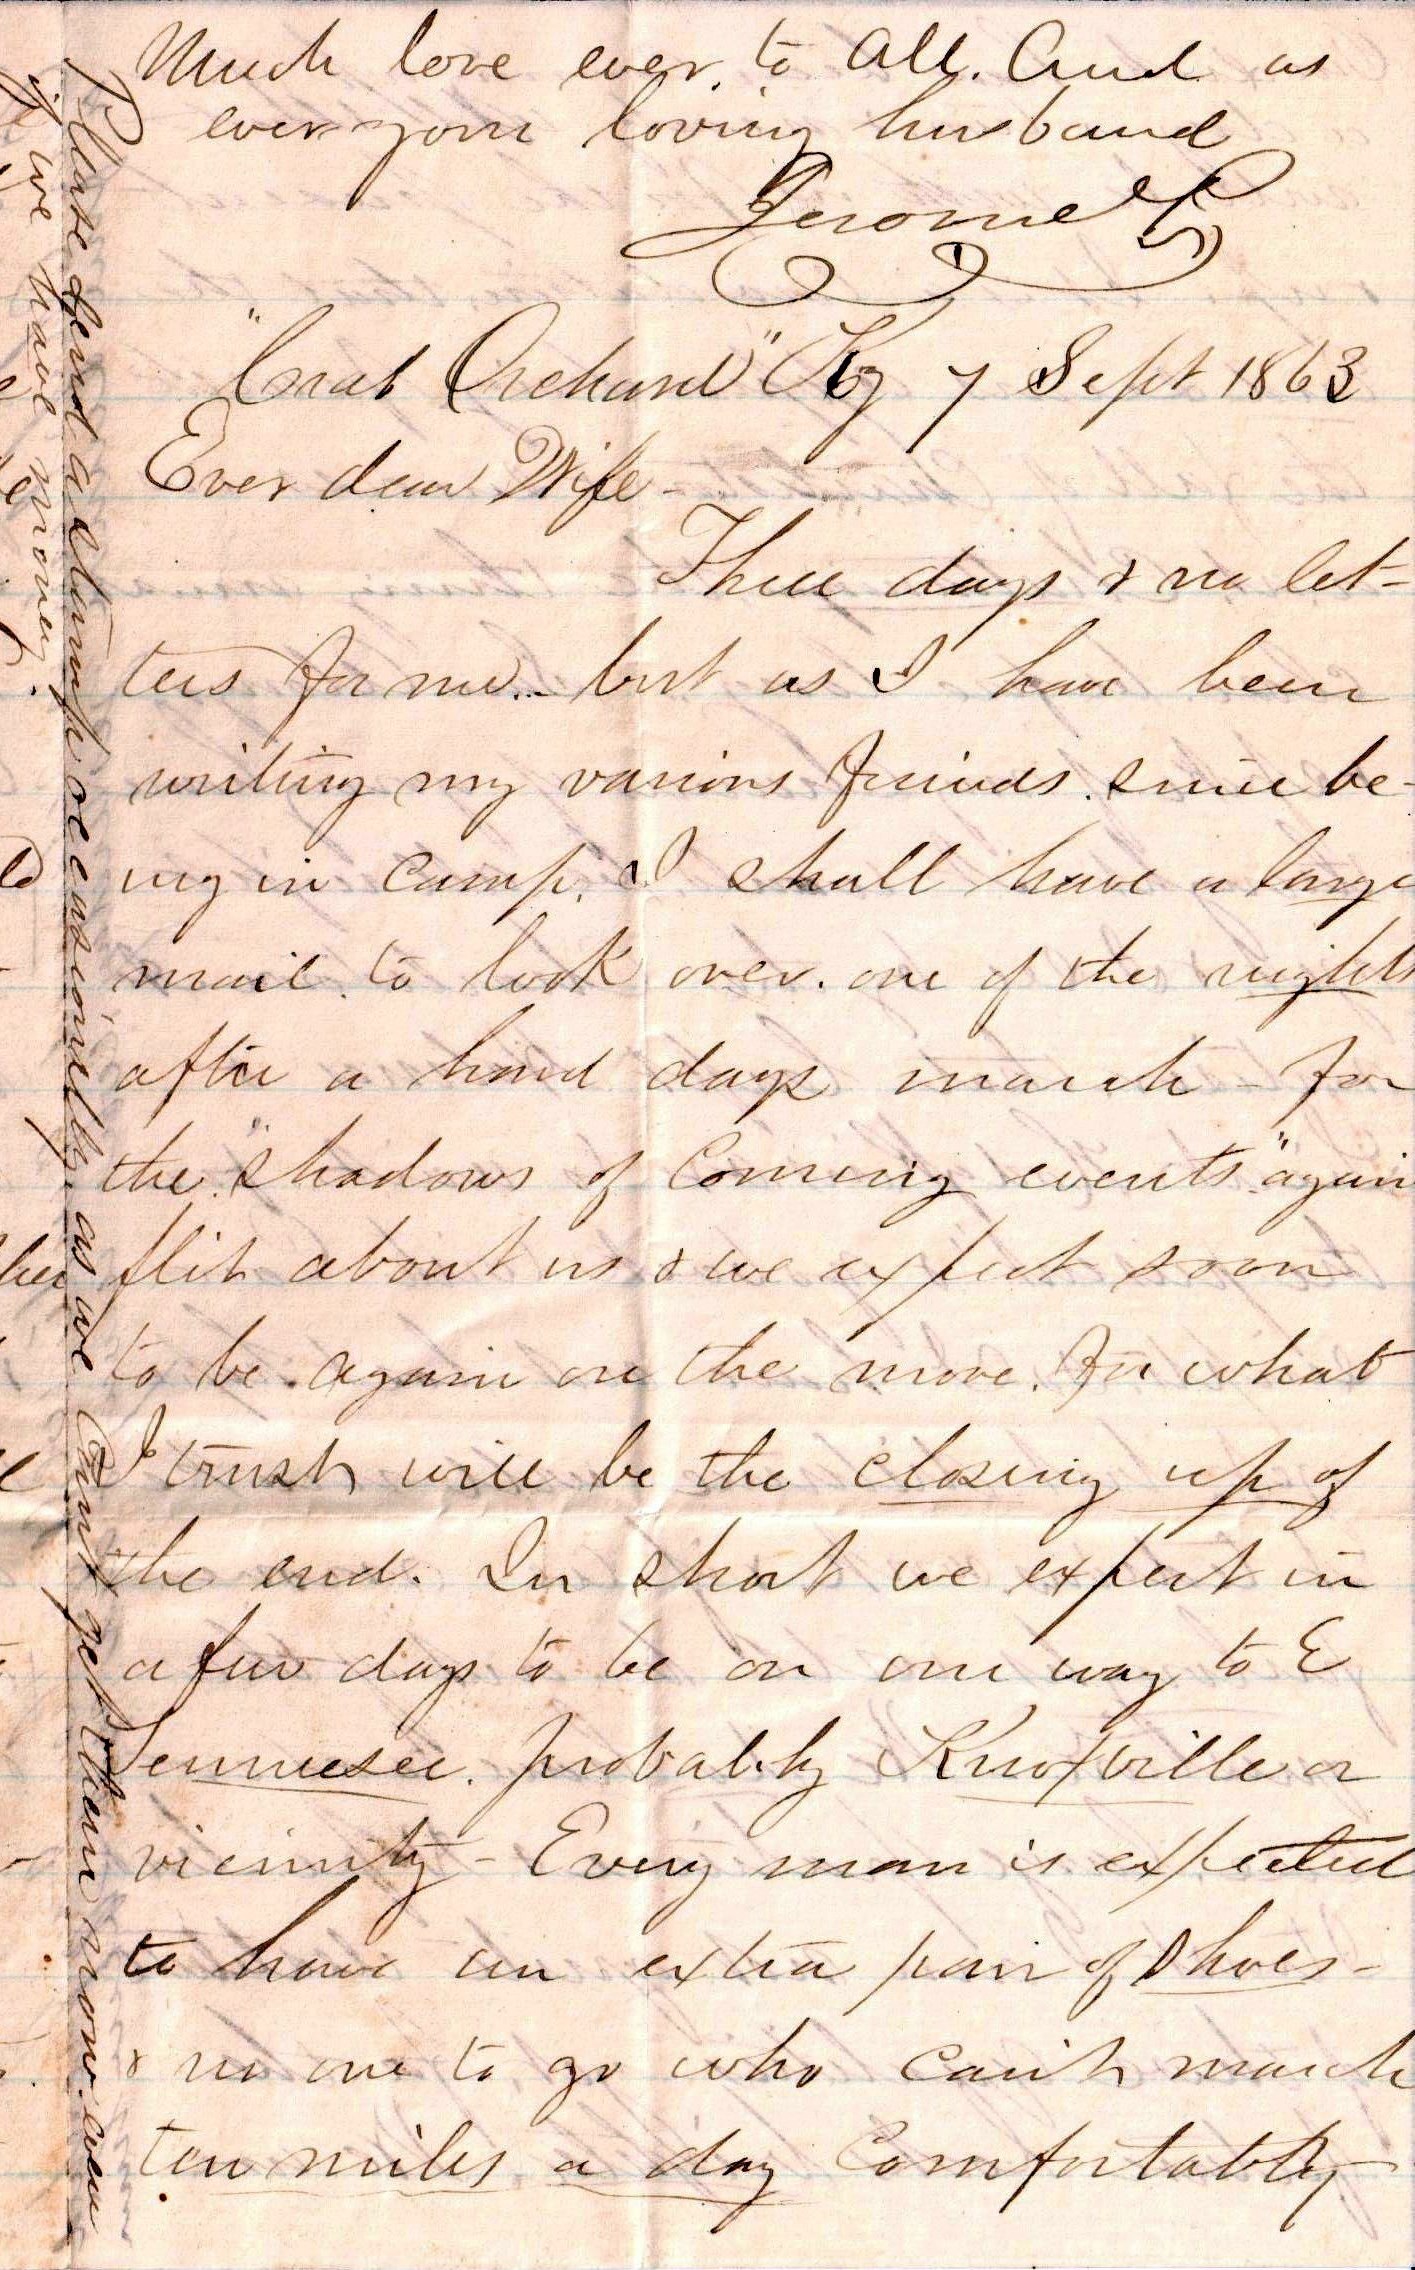 Much love ever. to all. And as
ever your loving husband
Jerome
"Crab Orchard" Ky 7 Sept 1863
Ever dear Wife -
Three days & no let-
ters for me.. but as I have been
writing my various friends. since be-
ing in camp. I shall have a large
mail. to look over. one of the nights
after a hard days march - for
the "shadows of Coming events" again
flit about us & we expect soon
to be again on the move. for what
I trust will be the closing up of
the end. In short we expect in
a few days to be on our way to E
Tennessee. probably Knoxville or
vicinity - Every man is expected
to have an extra pair of shoes -
& no one to go who can't march
ten miles a day Comfortably
Please send a stamp occasionally. as we Cant get them now. even
if we have money.